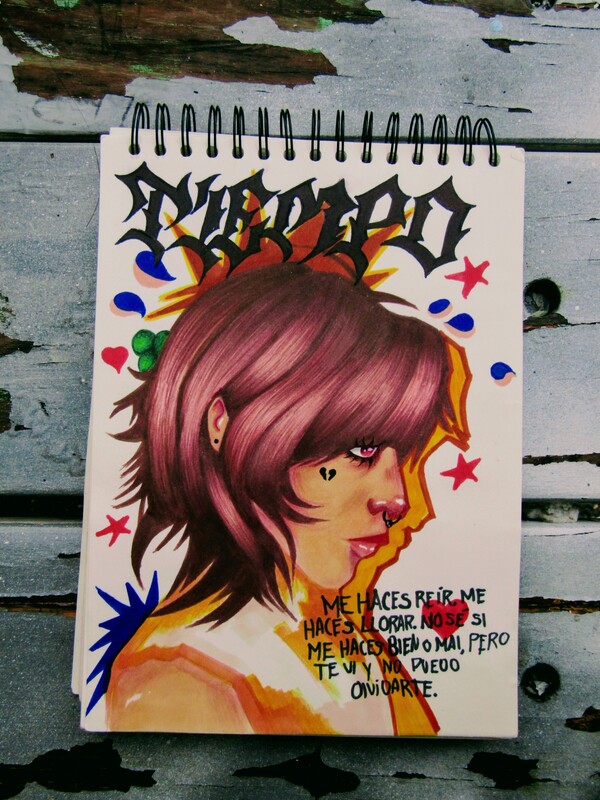 TIEMPO
ME HACES REÍR, ME
HACES LLORAR. NO SÉ SI
ME HACES BIEN O MAL, PERO
TE VI Y NO PUEDO
OlVIDARTE.